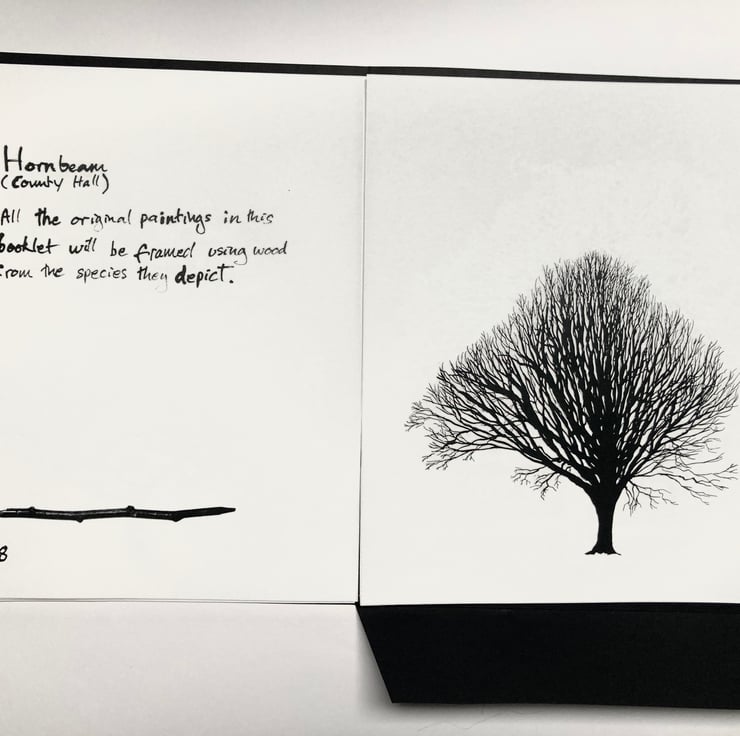 Hornbeam
(County Hall)
All the original paintings in this
booklet will be framed using wood
from the species they depict.
8